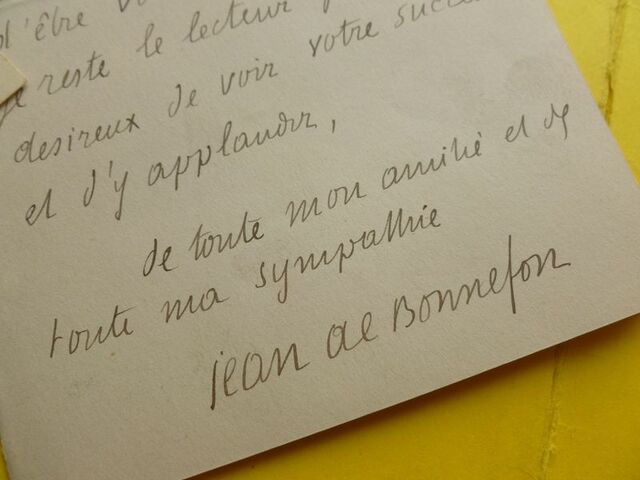 d'être
je reste le lecteur
desireux de voir votre succ
et d'y applaudir,
de toute mon amitié et de
toute ma sympathie
jean de Bonnefon